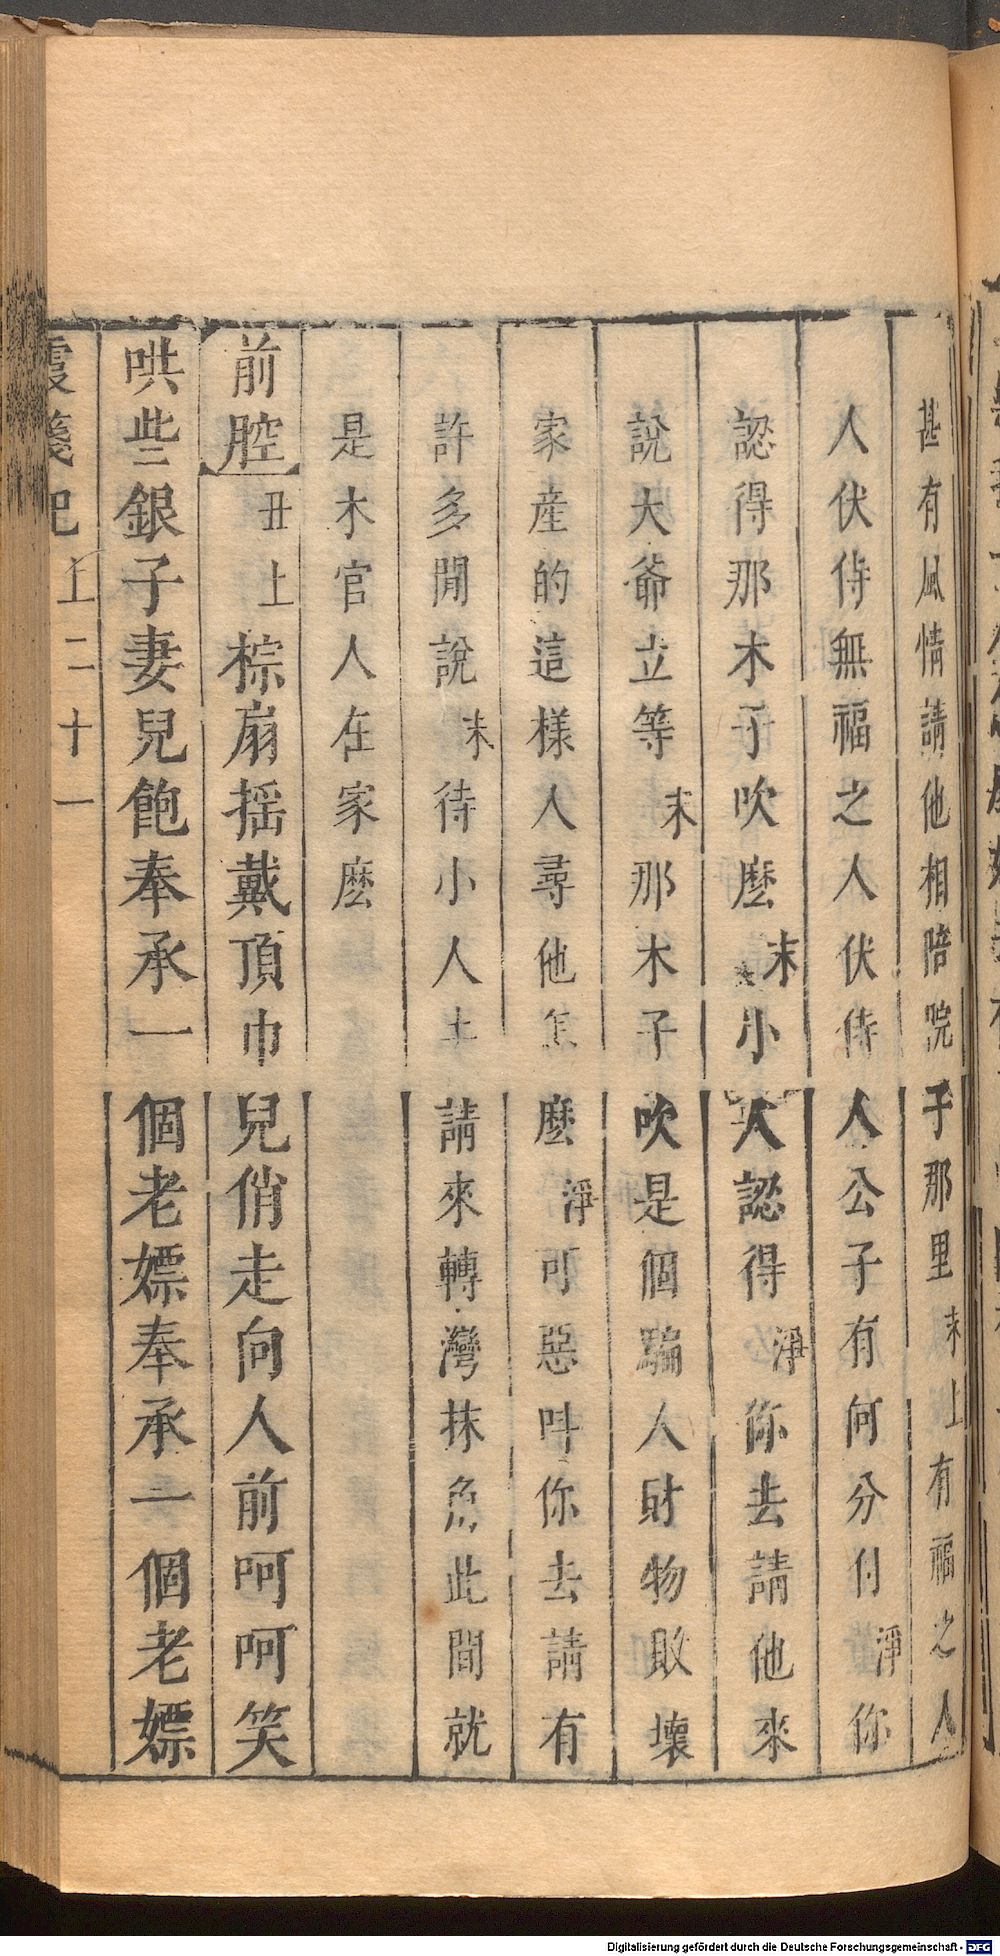 甚有風情請他相陪院子那里末上有福之人
人伏侍無福之人伏侍人公子有何分付淨你
認得那木子吹麽末小人認得淨你去請他來
說大爺立等末那木子吹是個騙人財物敗壞
家産的這樣人尋他怎麽淨可惡呌你去請有
許多閒說末待小人去請來轉灣抹角此間就
是木官人在家麽
前腔丑上棕扇摇戴頂巾兒俏走向人前呵呵笑
哄些銀子妻兒飽奉承一個老嫖奉承一個老嫖
霞箋記上二十一
Digitalisierung gefördert durch die Deutsche Forschungsgemeinschaft - DFG